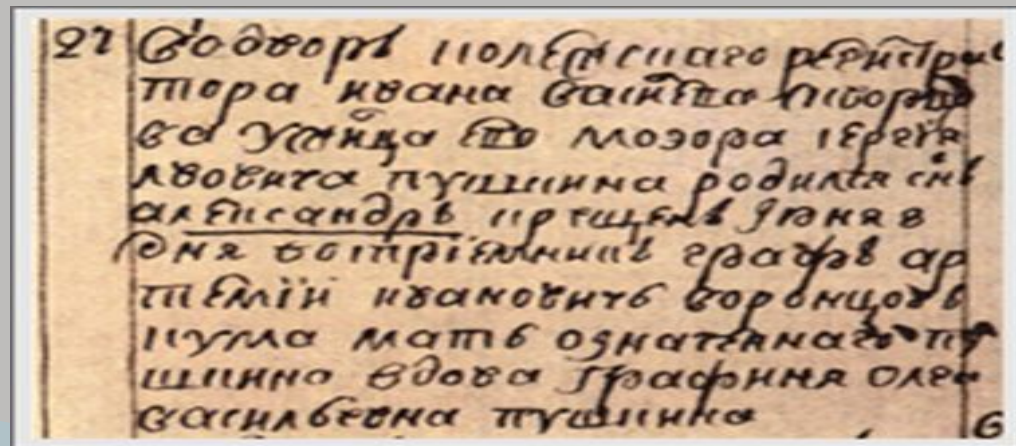 27 Во дворѣ колежскаго регистра
тора ивана васильева скворцо
ва у жилца ево моэора сергѣя
львовича пушкина родился снъ
александръ крещенъ июня 8
дня восприемникъ графъ ар
темїй ивановичь воронцовъ
кума мать означеннаго пу
шкина вдова графиня олга
васильевна пушкина 6